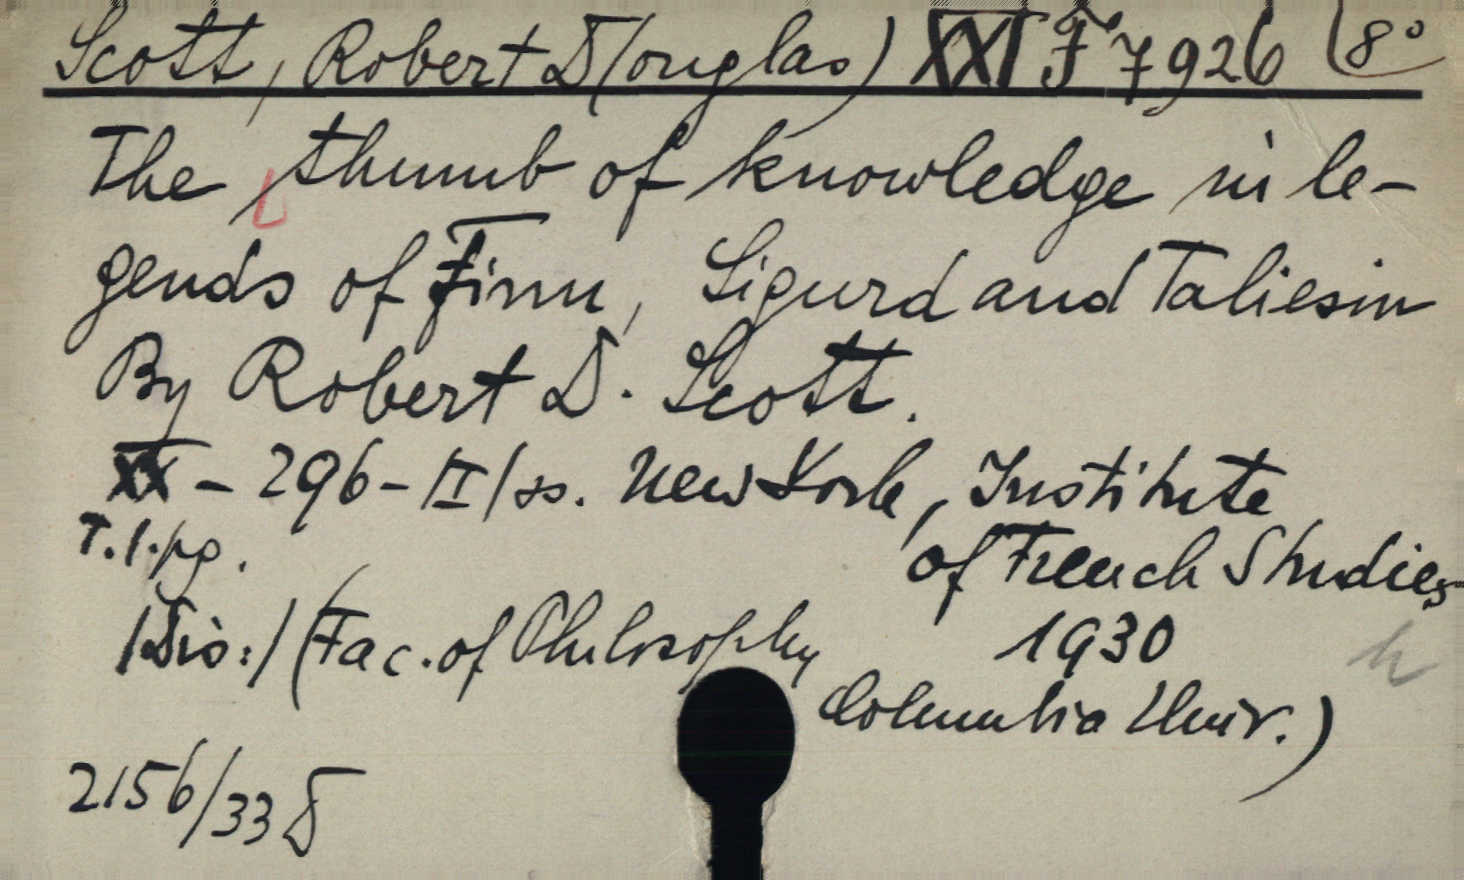 Scott, Robert D(ouglas) XXI F 7926 (8°
The thumb of knowledge in le-
gends of Finn, Sigurd and Taliesin
By Robert D. Scott.
XX - 296 - II/ss. New York, Institute
T.l.pg. of French Studies
/Dis:/ (Fac. of Philosophy 1930
Columbia Univ.)
2156/33 D